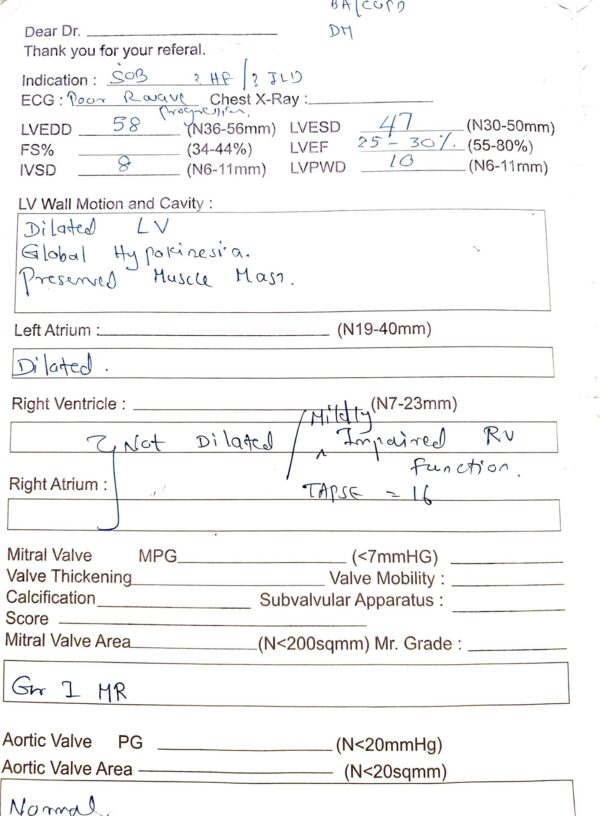 BA/COPD
Dear Dr.
DM
Thank you for your referal.
Indication : SOB ? HF / ? ILD
ECG : Poor R wave Progression. Chest X-Ray :
LVEDD 58 (N36-56mm) LVESD 47 (N30-50mm)
FS% (34-44%) LVEF 25 - 30% (55-80%)
IVSD 8 (N6-11mm) LVPWD 10 (N6-11mm)
LV Wall Motion and Cavity :
Dilated LV
Global Hypokinesia.
Preserved Muscle Mass.
Left Atrium : (N19-40mm)
Dilated.
Right Ventricle : (N7-23mm)
Not Dilated / Mildly Impaired RV
function.
Right Atrium :
TAPSE = 16
Mitral Valve MPG (<7mmHG)
Valve Thickening Valve Mobility :
Calcification Subvalvular Apparatus :
Score
Mitral Valve Area (N<200sqmm) Mr. Grade :
Gr I MR
Aortic Valve PG (N<20mmHg)
Aortic Valve Area (N<20sqmm)
Normal.